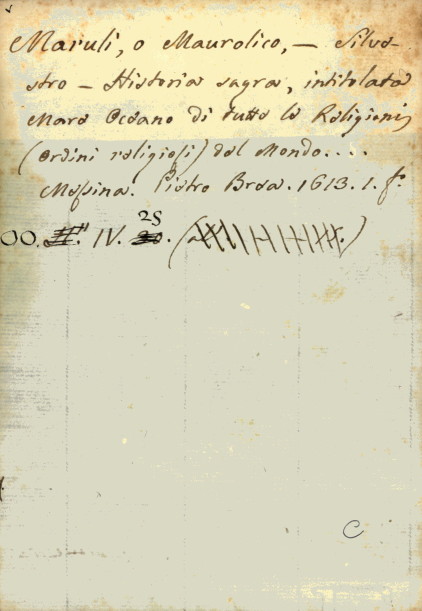 Maruli, o Maurolico, — Silve-
stro — Historia sagra, intitolata
Mare Oceano di tutte le Religioni
(Ordini religiosi) del Mondo....
Messina. Pietro Brea. 1613. 1. f.º
OO. IV. 28
C